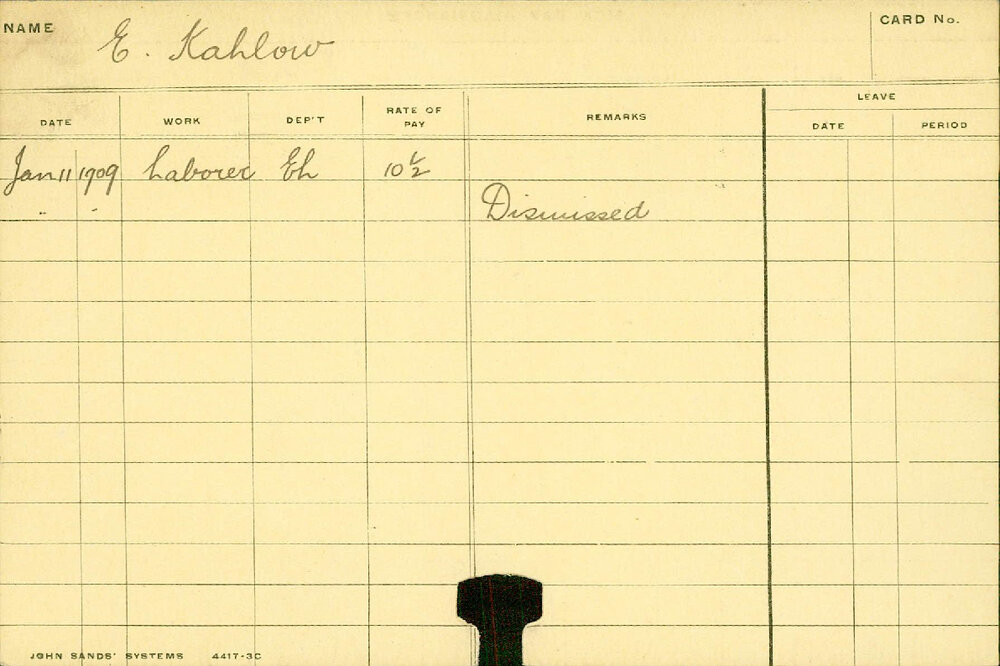 NAME E. Kahlow CARD No.
LEAVE
DATE WORK DEP'T RATE OF PAY REMARKS DATE PERIOD
Jan 11 1909 Laborer Eh 10 1/2
" " Dismissed
JOHN SANDS' SYSTEMS 4417-3C